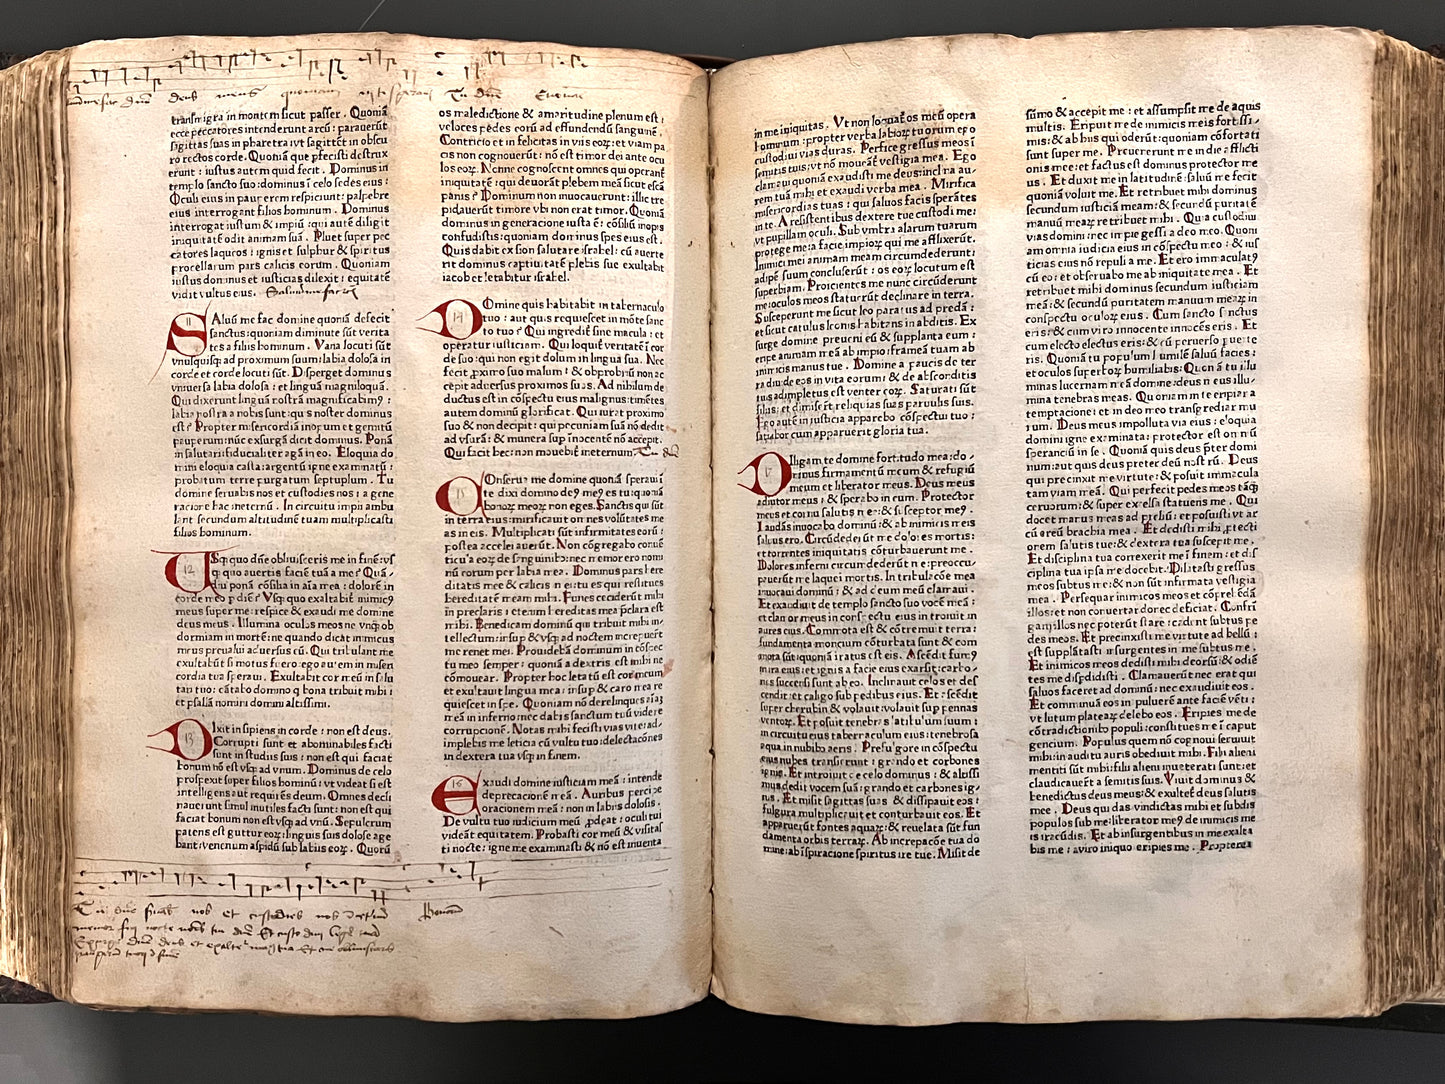 deus meus quoniam
transmigra in montem sicut passer . Quoniã
ecce peccatores intenderunt arcũ : parauerũt
sagittas suas in pharetra ; vt sagittẽt in obscu
ro rectos corde . Quoniã que pfecisti destrux
erunt : iustus autem quid fecit . Dominus in
templo sancto suo : dominus ĩ celo sedes eius :
Oculi eius in pauperem respiciunt : palpebre
eius interrogant filios hominum . Dominus
interrogat iustum & impiũ : qui autẽ diligit
iniquitatẽ odit animam suã . Pluet super pec
catores laqueos : ignis et sulphur & spiritus
procellarum pars calicis eorum . Quoniam
iustus dominus et iusticias dilexit : equitatẽ
vidit vultus eius .
11
SAluũ me fac domine quoniã defecit
sanctus : quoniam diminute sũt verita
tes a filiis hominum . Vana locuti sũt
vnusquisqȝ ad proximum suum : labia dolosa in
corde et corde locuti sũt . Disperget dominus
vniuersa labia dolosa : et linguã magniloquã .
Qui dixerunt linguã nostrã magnificabimꝰ :
labia nostra a nobis sunt : quis noster dominus
est ? Propter miseriã inopum et gemitũ
pauperum : nũc exsurgã dicit dominus . Ponã
in salutari : fiducialiter agã in eo . Eloquia do
mini eloquia casta : argentũ igne examinatũ :
probatum terre purgatum septuplum . Tu
domine seruabis nos et custodies nos : a gene
ratione hac ineternũ . In circuitu impii ambu
lant secundum altitudinẽ tuam multiplicasti
filios hominum .
12
USqȝ quo dñe obliuisceris me in finẽ : vs
qȝ quo auertis faciẽ tuã a me ? Quã
diu ponã cõsilia in aĩa mea : dolorẽ in
corde meo p diẽ ? Vsqȝ quo exaltabit̃ inimicꝰ
meus super me : respice & exaudi me domine
deus meus . Illumina oculos meos ne vnqȝ ob
dormiam in morte : ne quando dicat inimicus
meus preualui aduersus eũ . Qui tribulant me
exultabũt si motus fuero : ego autem in miseri
cordia tua speraui . Exultabit cor meũ in salu
tari tuo : cãtabo domino q bona tribuit mihi :
et psallã nomini domini altissimi .
13
DIxit insipiens in corde : non est deus .
Corrupti sunt et abominabiles facti
sunt in studiis suis : non est qui faciat
bonum nõ est vsqȝ ad vnum . Dominus de celo
prospexit super filios hominũ : vt videat si est
intelligens aut requirẽs deum . Omnes decli
nauerunt simul inutiles facti sunt : non est qui
faciat bonum non est vsqȝ ad vnũ . Sepulcrum
patens est guttur eoꝝ : linguis suis dolose age
bant : venenum aspidũ sub labiis eoꝝ . Quorũ
os maledictione & amaritudine plenum est :
veloces pedes eorũ ad effundendũ sanguinẽ .
Contricio et infelicitas in viis eoꝝ : et viam pa
cis non cognouerũt : nõ est timor dei ante ocu
los eoꝝ . Nonne cognoscent omnes qui operant̃
iniquitatẽ : qui deuorãt plebem meã sicut escã
panis ? Dominum non inuocauerunt : illic tre
pidauerũt timore vbi non erat timor . Quoniã
dominus in generacione iusta ẽ : cõsiliũ inopis
confudistis : quoniam dominus spes eius est .
Quis dabit ex sion salutare israhel : cũ auerte
rit dominus captiuitatẽ plebis sue exultabit
iacob et letabitur israhel .
14
DOmine quis habitabit in tabernaculo
tuo : aut quis requiescet in mõte sanc
to tuo ? Qui ingredit̃ sine macula : et
operatur iusticiam . Qui loquit̃ veritatẽ ĩ cor
de suo : qui non egit dolum in lingua sua . Nec
fecit proximo suo malum : & obprobriũ non ac
cepit aduersus proximos suos . Ad nihilum de
ductus est in cõspectu eius malignus : timẽtes
autem dominũ glorificat . Qui iurat proximo
suo & non decipit : qui pecuniam suã nõ dedit
ad vsurã : & munera sup innocentẽ nõ accepit .
Qui facit hec : non mouebit̃ ineternum .
15
COnserua me domine quoniã speraui ĩ
te dixi domino deꝰ meꝰ es tu : quoniã
bonoꝝ meoꝝ non eges . Sanctis qui sũt
in terra eius : mirificauit omnes volũtates me
as in eis . Multiplicati sũt infirmitates eorũ :
postea accelerauerũt . Non cõgregabo conuẽ
ticula eoꝝ de sanguinibꝰ : nec memor ero nomi
nũ eorum per labia mea . Dominus pars here
ditatis mee & calicis mei : tu es qui restitues
hereditatẽ meam mihi . Funes ceciderũt mihi
in preclaris : etenim hereditas mea pclara est
mihi . Benedicam dominũ qui tribuit mihi in
tellectum : insup & vsqȝ ad noctem increpuerũt
me renes mei . Prouidebã dominum in cõspec
tu meo semper : quoniã a dextris est mihi ne
cõmouear . Propter hoc letatũ est cor meum
et exultauit lingua mea : insup & caro mea re
quiescet in spe . Quoniam nõ derelinques aĩaȝ
meã in inferno : nec dabis sanctum tuũ videre
corrupcionẽ . Notas mihi fecisti vias vite : ad
implebis me leticia cũ vultu tuo : delectacõnes
in dextera tua vsqȝ in finem .
16
Exaudi domine iusticiam meã : intende
deprecacionẽ meã . Auribus percipe
oracionem meã : non in labiis dolosis .
De vultu tuo iudicium meũ pdeat : oculi tui
videãt equitatem . Probasti cor meũ & visitas
ti nocte : igne me examinasti & nõ est inuenta
nos et custodies nos
in me iniquitas . Vt non loquat̃ os meũ opera
hominum : propter verba labioꝝ tuorum ego
custodiui vias duras . Perfice gressus meos ĩ
semitis tuis : vt nõ moueãt̃ vestigia mea . Ego
clamaui quoniã exaudisti me deus : inclina au
rem tuã mihi et exaudi verba mea . Mirifica
misericordias tuas : qui saluos facis sperãtes
in te . A resistentibus dextere tue custodi me :
vt pupillam oculi . Sub vmbra alarum tuarum
protege me : a facie impioꝝ qui me afflixerũt .
Inimici mei animam meam circumdederunt :
adipẽ suum concluserũt : os eoꝝ locutum est
superbiam . Proicientes me nunc circũderunt
me : oculos meos statuerũt declinare in terra .
Susceperunt me sicut leo paratus ad predã :
et sicut catulus leonis habitans in abditis . Ex
surge domine preueni eũ & supplanta eum :
eripe animam meã ab impio : frameã tuam ab
inimicis manus tue . Domine a paucis de ter
ra diuide eos in vita eorum : & de absconditis
tuis adimpletus est venter eoꝝ . Saturati sũt
filiis : et dimiserũt reliquias suas paruulis suis .
Ego autẽ in iusticia apparebo cõspectui tuo :
satiabor cum apparuerit gloria tua .
17
DIligam te domine fortitudo mea : do
minus firmamentũ meum & refugiũ
meum et liberator meus . Deus meus
adiutor meus : & sperabo in eum . Protector
meus et cornu salutis mee : & susceptor meꝰ .
Laudãs inuocabo dominũ : & ab inimicis meis
saluus ero . Circũdederũt me dolores mortis :
et torrentes iniquitatis cõturbauerunt me .
Dolores inferni circumdederũt me : preoccu
pauerũt me laquei mortis . In tribulacõne mea
inuocaui dominũ : & ad deum meũ clamaui .
Et exaudiuit de templo sancto suo vocẽ meã :
et clamor meus in conspectu eius introiuit in
aures eius . Commota est & cõtremuit terra :
fundamenta moncium cõturbata sunt & com
mota sũt : quoniã iratus est eis . Ascẽdit fumꝰ
in ira eius : et ignis a facie eius exarsit : carbo
nes succensi sunt ab eo . Inclinauit celos et des
cendit : et caligo sub pedibus eius . Et ascẽdit
super cherubin & volauit : volauit sup pennas
ventoꝝ . Et posuit tenebras latibulum suum :
in circuitu eius tabernaculum eius : tenebrosa
aqua in nubibꝰ aeris . Prefulgore in cõspectu
eius nubes transierunt : grando et carbones
ignis . Et intonuit de celo dominus : & altissi
mus dedit vocem suã : grando et carbones ig
nis . Et misit sagittas suas & dissipauit eos :
fulgura multiplicauit et conturbauit eos . Et
apparuerũt fontes aquaꝝ : & reuelata sũt fun
damenta orbis terraꝝ . Ab increpacõne tua do
mine : ab ĩspiracione spiritus ire tue . Misit de
sũmo & accepit me : et assumpsit me de aquis
multis . Eripuit me de inimicis meis fortissi
mis : & ab hiis qui oderũt : quoniam cõfortati
sunt super me . Preuenerunt me in die afflicti
onis mee : et factus est dominus protector me
us . Et duxit me in latitudinẽ : saluũ me fecit
quoniã voluit me . Et retribuet mihi dominus
secundum iusticiam meam : & secundũ puritatẽ
manuũ meaꝝ retribuet mihi . Quia custodiui
vias domini : nec impie gessi a deo meo . Quoniã
omnia iudicia eius in cõspectu meo : & ius
ticias eius nõ repuli a me . Et ero immaculatꝰ
cũ eo : et obseruabo me ab iniquitate mea . Et
retribuet mihi dominus secundum iusticiam
meã : & secundũ puritatem manuum meaꝝ in
conspectu oculoꝝ eius . Cum sancto sanctus
eris : & cum viro innocente innocẽs eris . Et
cum electo electus eris : & cũ peruerso peruerte
ris . Quoniã tu populum humilẽ saluũ facies :
et oculos superboꝝ humiliabis : Quoniã tu illu
minas lucernam meã domine : deus meus illu
mina tenebras meas . Quoniam in te eripiar a
temptacione : et in deo meo transgrediar mu
rum . Deus meus impolluta via eius : eloquia
domini igne examinata : protector est omniũ
speranciũ in se . Quoniã quis deus preter do
minum : aut quis deus preter deũ nostrũ . Deus
qui precinxit me virtute : & posuit immacula
tam viam meã . Qui perfecit pedes meos tãqȝ
ceruorum : & super excelsa statuens me . Qui
docet manus meas ad preliũ : et posuisti vt ar
cũ ereũ brachia mea . Et dedisti mihi ptecti
onem salutis tue : & dextera tua suscepit me .
Et disciplina tua correxit me ĩ finem : et dis
ciplina tua ipsa me docebit . Dilatasti gressus
meos subtus me : & non sũt infirmata vestigia
mea . Persequar inimicos meos et cõprehẽdã
illos : et non conuertar donec deficiant . Confrĩ
gam illos nec poterũt stare : cadent subtus pe
des meos . Et precinxisti me virtute ad bellũ :
et supplãtasti insurgentes in me subtus me .
Et inimicos meos dedisti mihi dorsũ : & odiẽ
tes me disperdidisti . Clamauerũt nec erat qui
saluos faceret ad dominũ : nec exaudiuit eos .
Et comminuã eos in puluerẽ ante faciẽ vẽti :
vt lutum plateaꝝ delebo eos . Eripies me de
cõtradictionibꝰ populi : constitues me ĩ caput
gencium . Populus quem nõ cognoui seruiuit
mihi : in auditu auris obediuit mihi . Filii alieni
mentiti sũt mihi : filii alieni inueterati sunt : et
claudicauerũt a semitis suis . Viuit dominus &
benedictus deus meus : & exaltet̃ deus salutis
mee . Deus qui das vindictas mihi et subdis
populos sub me : liberator meꝰ de inimicis me
is iracũdis . Et ab insurgentibus in me exalta
bis me : a viro iniquo eripies me . Propterea